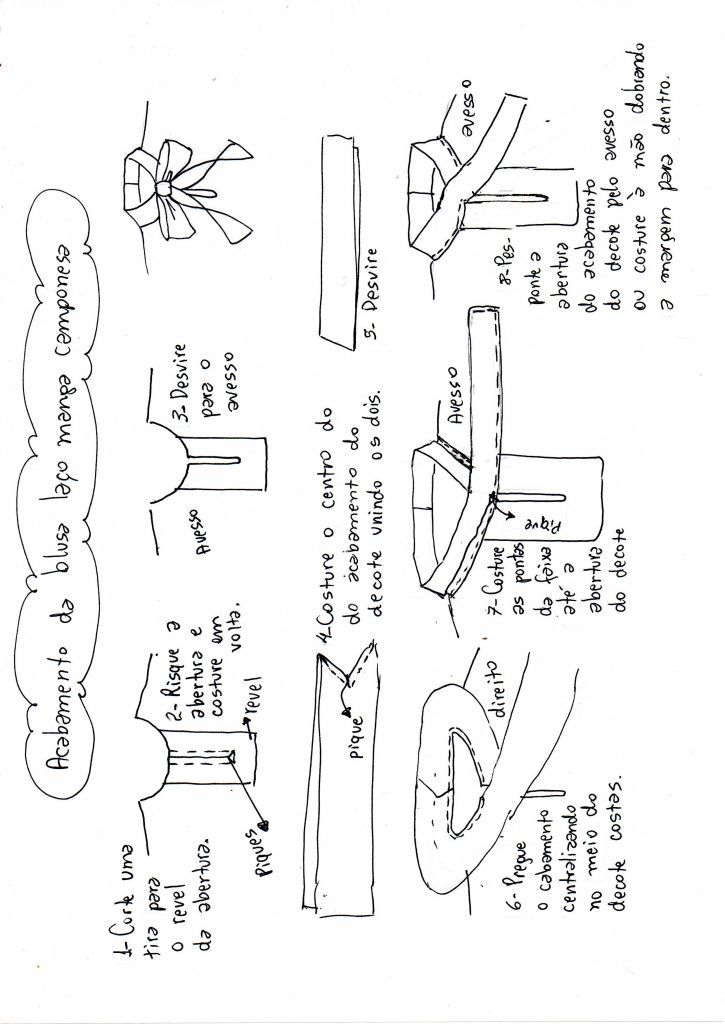 Acabamento da blusa laço manga camponesa
1- Corte uma
tira para
o revel
da abertura.
piques
2- Risque a
abertura e
costure em
volta.
revel
Avesso
3- Desvire
para o
avesso
pique
4- Costure o centro do
do acabamento do
decote unindo os dois.
5- Desvire
6- Pregue
o cabamento
centralizando
no meio do
decote costas.
direito
7- Costure
as pontas
da faixa
até a
abertura
do decote
Pique
Avesso
8- Pes-
ponte a
abertura
do acabamento
do decote pelo avesso
ou costure à mão dobrando
a margem para dentro.
avesso